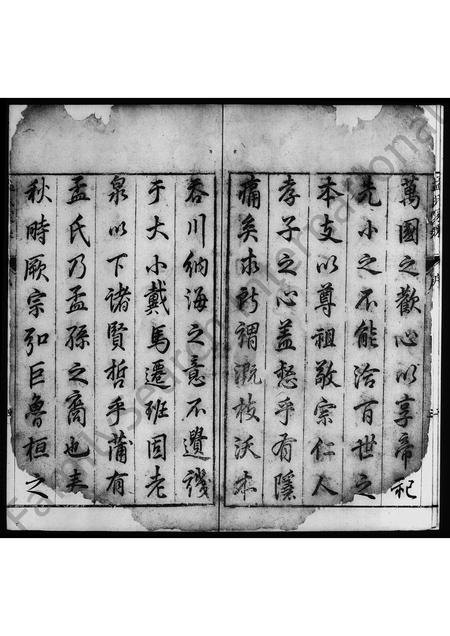 萬國之歡心以享帝祀
先小之不能洽百世之
本支以尊祖敬宗仁人
孝子之心蓋愁乎有隱
痛矣求所謂溉枝沃本
吞川納海之意不遺譏
于大小戴馬遷班固老
泉以下諸賢哲乎蒲有
孟氏乃孟孫之裔也夫
秋時厥宗弘巨魯桓之
FamilySearch International